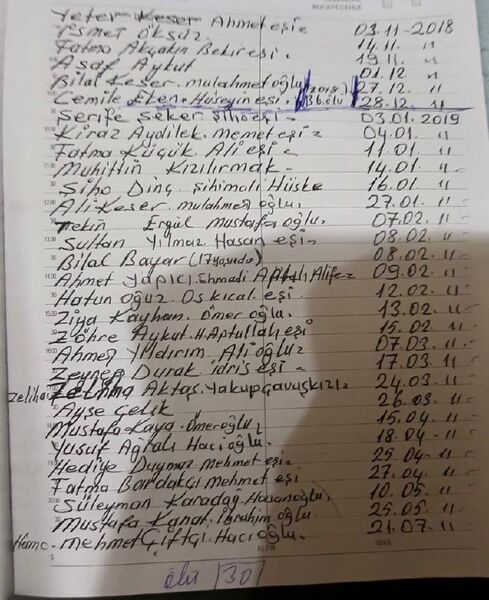 ВОСКРЕСЕНЬЕ
Yeter Keser Ahmet eşi - 03.11-2018
İsmet Öksüz 14.11 "
Fatma Akçakın Bekir eşi. 19.11 "
Asaf Aykut 01.12 "
Bilal Keser. mulahmet oğlu 27.12 "
Cemile Eken. Hüseyin eşi. (2018) 36.ölü 28.12 "
Şerife Şeker Şiho eşi - 03.01.2019
Kiraz Aydilek. memet eşi - 04.01 "
Fatma Küçük Ali eşi - 11.01 "
Muhittin Kızılırmak - 14.01 "
Şiho Dinç. Şihimoli Hüske 16.01 "
Ali Keser. mulahmet oğlu. 27.01 "
Tekin Ergül Mustafa oğlu. 07.02 "
Sultan Yılmaz Hasan eşi - 08.02 "
Bilal Bayar (17 yaşında) 08.02 "
Ahmet Yapıcı. 09.02 "
Hatun Oğuz Oskıcal eşi 12.02 "
Ziya Kayhan. Ömer oğlu. 13.02 "
Zöhre Aykut. H.Aptullah eşi 15.02 "
Ahmet Yıldırım. Ali oğlu - 07.03 "
Zeynep Durak idris eşi - 17.03 "
Zeliha Zeliha Aktaş. Yakup Çavuş kızı - 24.03 "
Ayşe Çelik 26.03 "
Mustafa Kaya. Ömeroğlu - 15.04 "
Yusuf Ağralı Hacıoğlu. 18.04 "
Hediye Duymaz Mehmet eşi - 25.04 "
Fatma Bardakçı Mehmet eşi 27.04 "
Süleyman Karadağ. Hasanoğlu. 10.05 "
Mustafa Kanat. İbrahim oğlu. 25.05 "
Mehmet Çiftçi. Hacıoğlu. 21.07 "
ölü 30